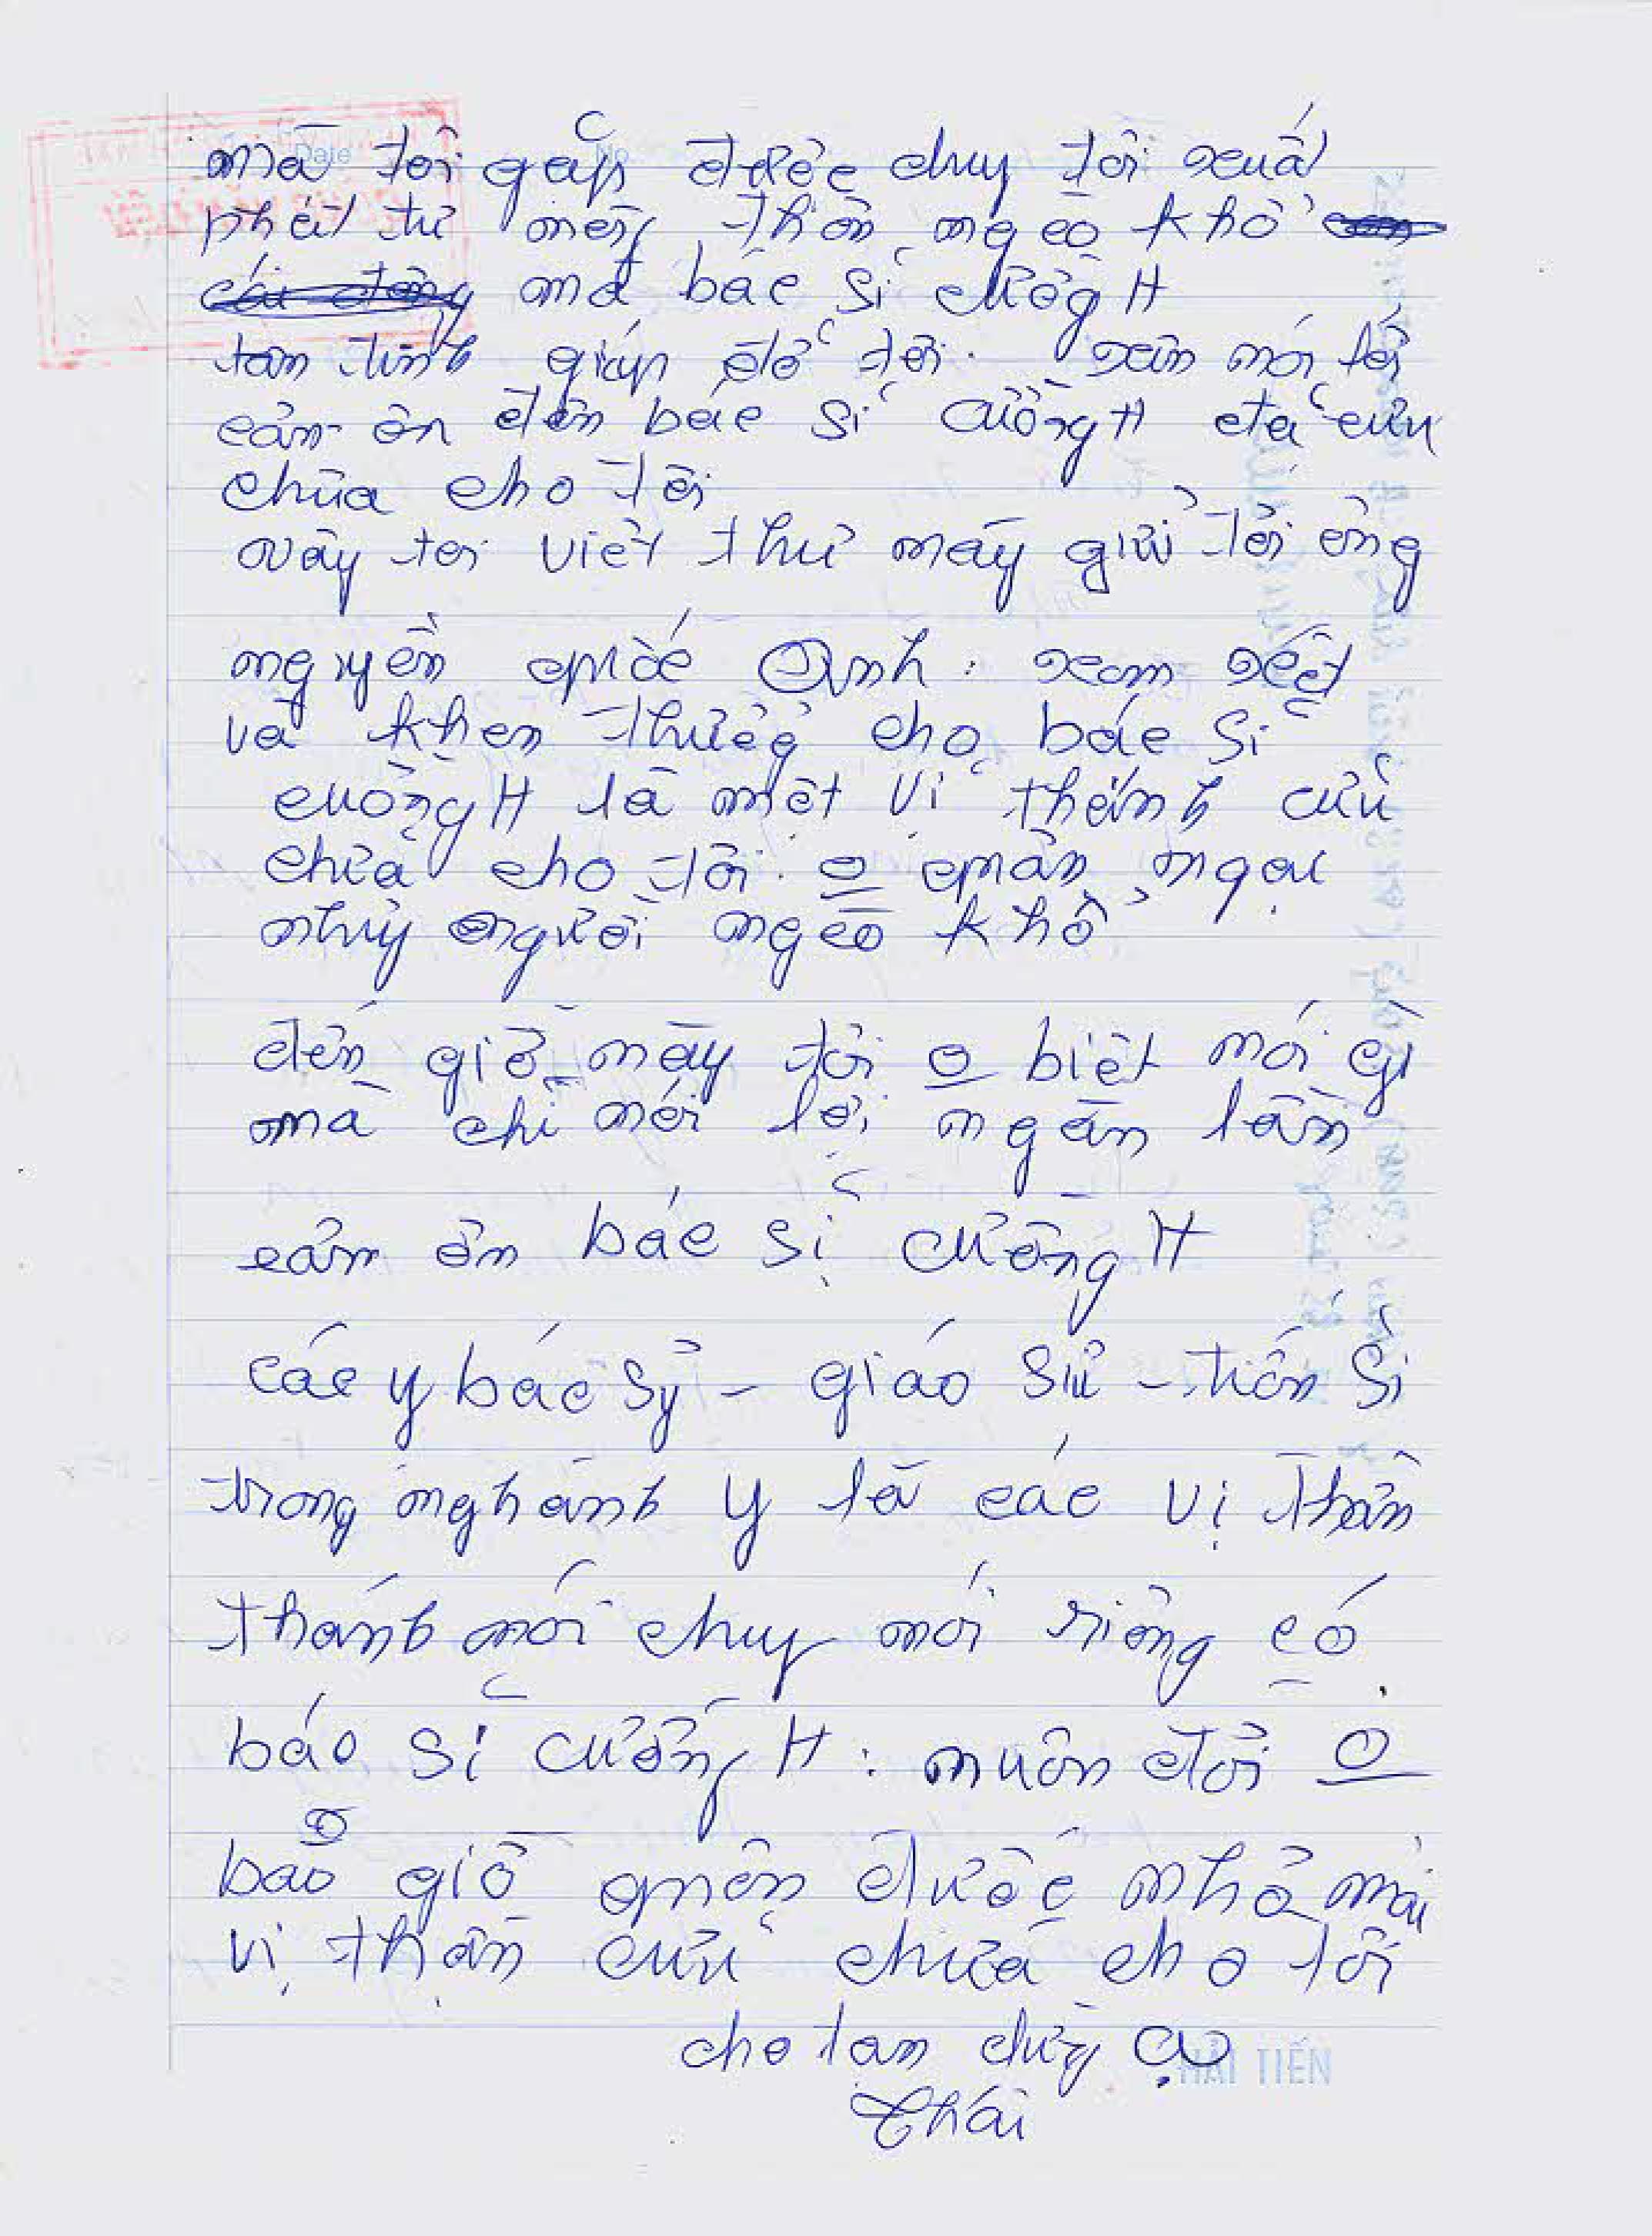 mà tôi gặp được chuy tôi xuất
phát từ mền thôn ngèo khổ
mà bác sĩ cườg H
tân tình giúp đỡ tôi. xin nói lời
cảm ơn đến bác sĩ cường H đã cứu
chữa cho tôi
vậy tôi viết thư nãy gửi tới ông
nguyễn quốc Anh: xem xết
và khen thưởg cho bác sĩ
cường H là một vị thánh cứu
chữa cho tôi. o quản ngại
nhưỹ người ngèo khổ
đến giờ nãy tôi o biết nói gì
mà chỉ nói lời ngàn lần
cảm ơn bác sĩ cường H
các y bác sỹ - giáo sư - tiến sĩ
trong nghành y là các vị thần
thánh nói chuy nói riêng có
báo sĩ cường H: muôn đời o
bao giờ quên được nhớ mãi
vị thần cứu chữa cho tôi
thái
HẢI TIẾN
Date
No.